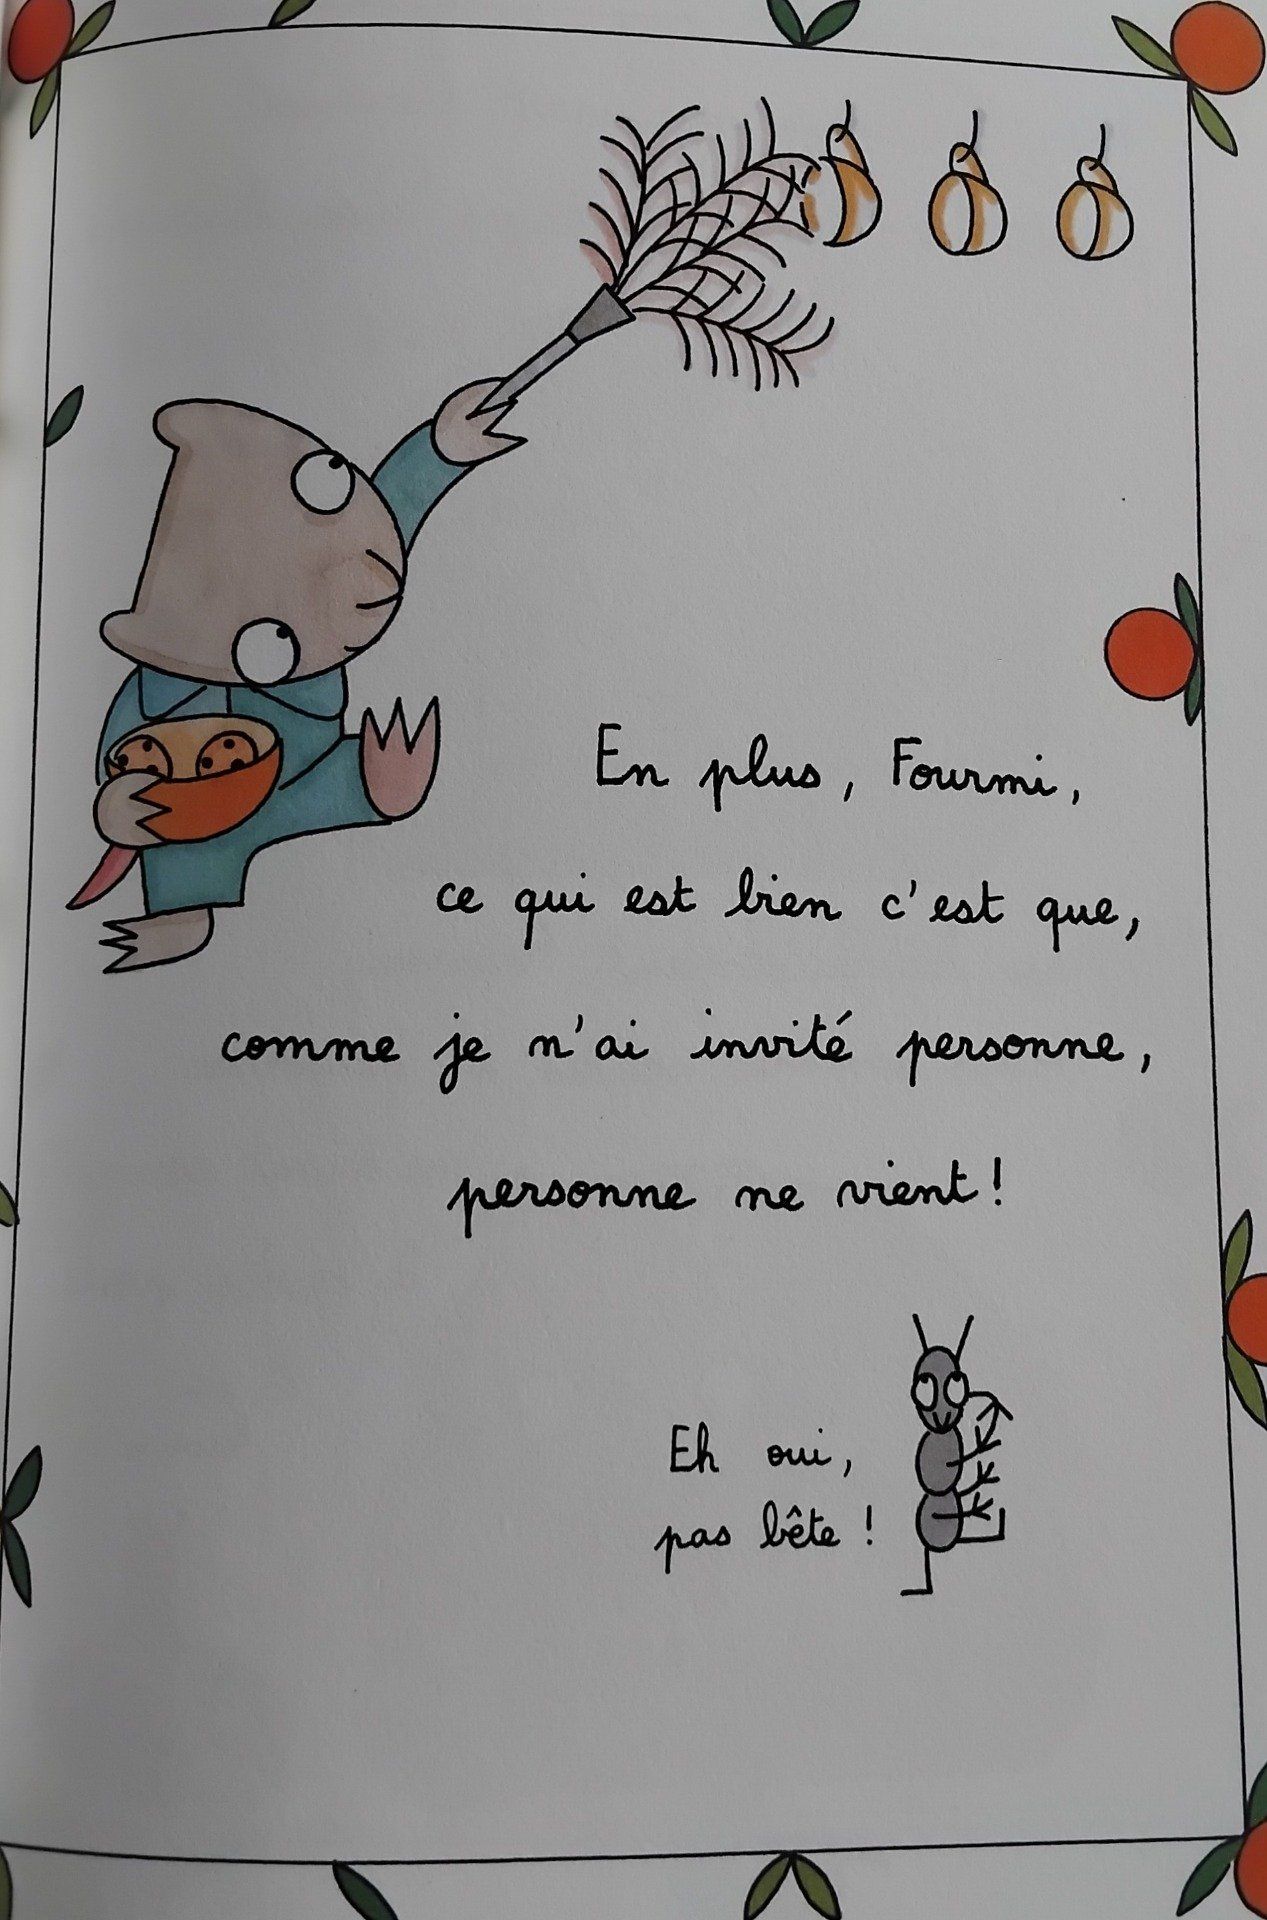 En plus, Fourmi,
ce qui est bien c'est que,
comme je n'ai invité personne,
personne ne vient !
Eh oui,
pas bête !